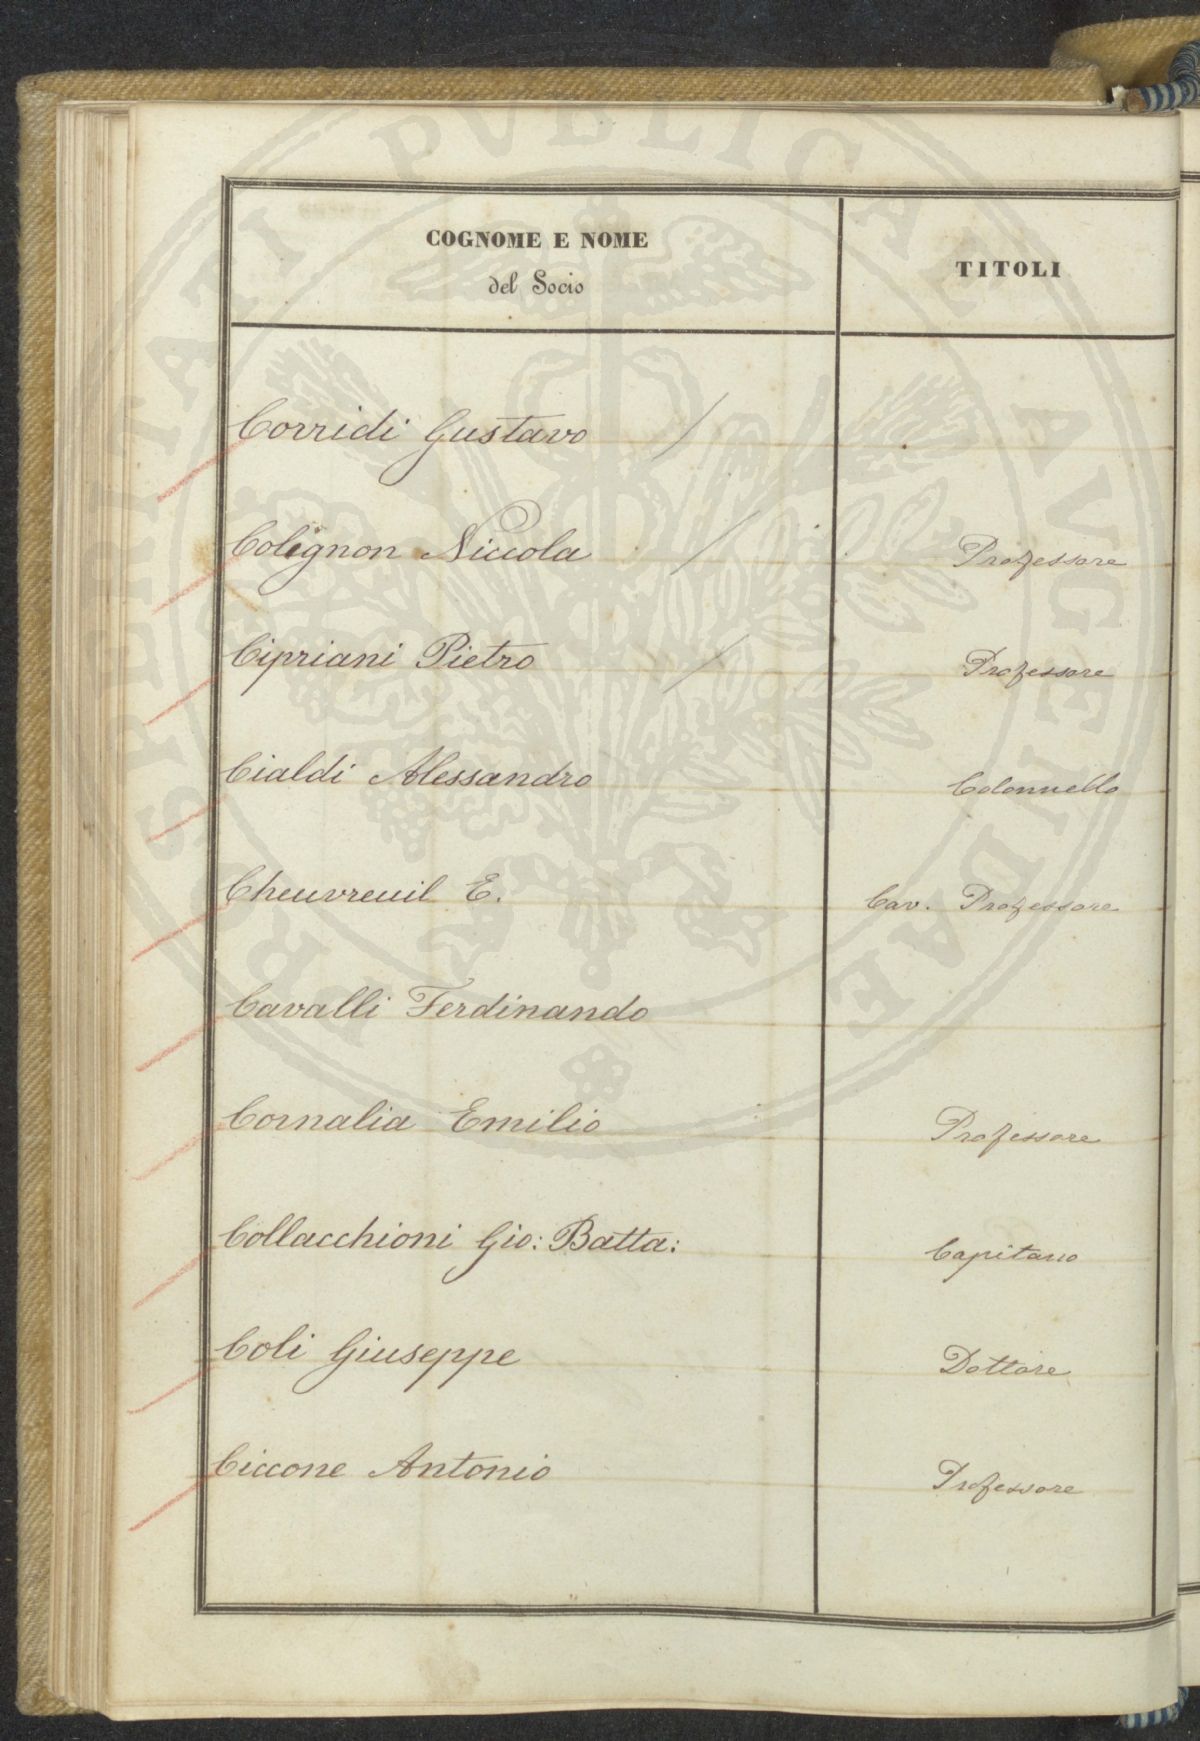 COGNOME E NOME
del Socio
TITOLI
Corridi Gustavo
Colignon Niccola Professore
Cipriani Pietro Professore
Cialdi Alessandro Colonnello
Cheuvreuil E. Cav. Professore
Cavalli Ferdinando
Cornalia Emilio Professore
Collacchioni Gio: Batta: Capitano
Coli Giuseppe Dottore
Ciccone Antonio Professore
PROSPERITATI PVBLICAE AVGENDAE